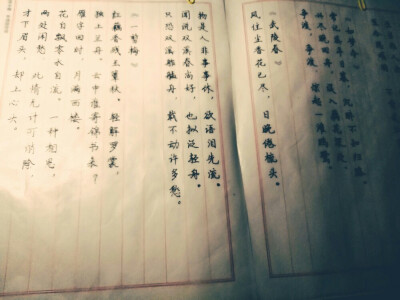 争渡，争渡，惊起一滩鸥鹭。
《武陵春》
风住尘香花已尽，日晚倦梳头。
物是人非事事休，欲语泪先流。
闻说双溪春尚好，也拟泛轻舟。
只恐双溪舴艋舟，载不动许多愁。
《一剪梅》
红藕香残玉簟秋。轻解罗裳，
独上兰舟。云中谁寄锦书来？
雁字回时，月满西楼。
花自飘零水自流。一种相思，
两处闲愁。此情无计可消除，
才下眉头，却上心头。